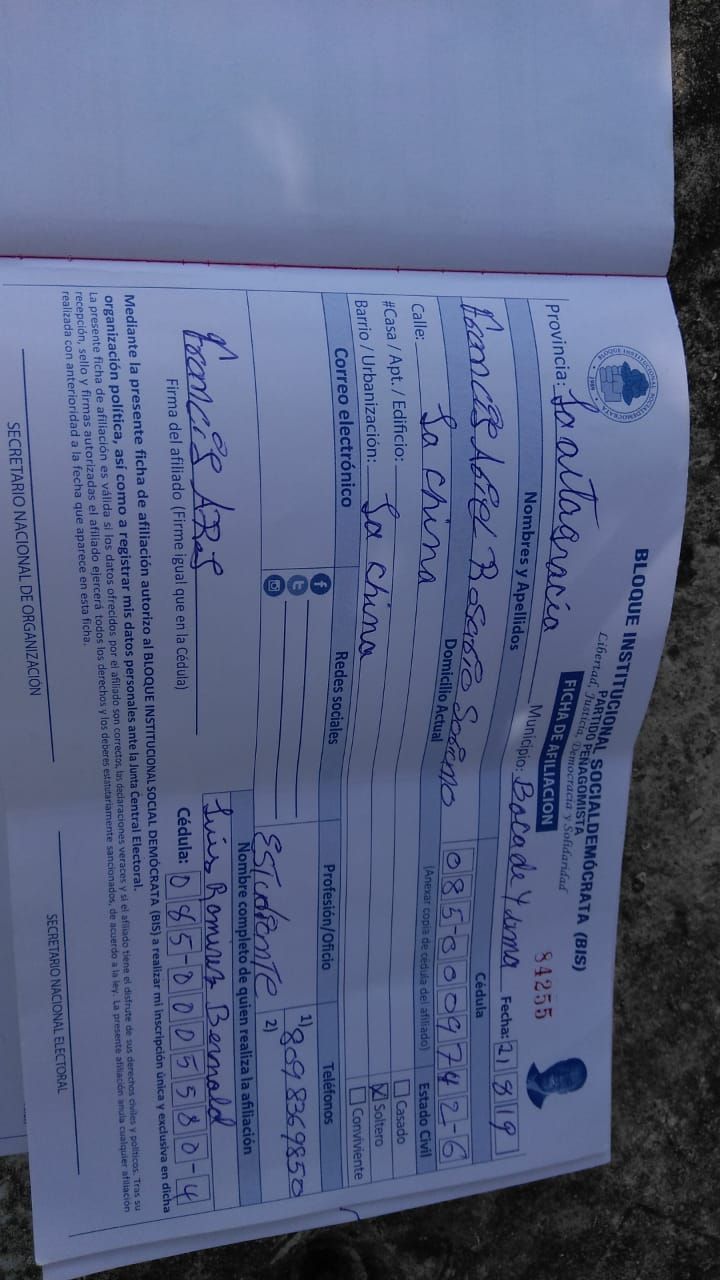 BLOQUE INSTITUCIONAL SOCIALDEMÓCRATA (BIS)
PARTIDO PEÑAGOMISTA
Libertad, Justicia, Democracia y Solidaridad
FICHA DE AFILIACION
84255
BLOQUE INSTITUCIONAL SOCIALDEMOCRATA
Provincia: La altagracia Municipio: Boca de Yuma Fecha: 21 8 19
Nombres y Apellidos Cédula
Francis Rosario 085-0009742-6
Domicilio Actual (Anexar copia de cédula del afiliado) Estado Civil
Calle: La china
#Casa / Apt. / Edificio:
Barrio / Urbanización: La china
Casado
Soltero
Conviviente
Correo electrónico Redes sociales Profesión/Oficio Teléfonos
Estudiante 1) 8098369850
2)
Nombre completo de quien realiza la afiliación
Francis
Luis Ramirez Bernald
Firma del afiliado (Firme igual que en la Cédula) Cédula: 085-0005580-4
Mediante la presente ficha de afiliación autorizo al BLOQUE INSTITUCIONAL SOCIAL DEMÓCRATA (BIS) a realizar mi inscripción única y exclusiva en dicha
organización política, así como a registrar mis datos personales ante la Junta Central Electoral.
La presente ficha de afiliación es válida si los datos ofrecidos por el afiliado son correctos, las declaraciones veraces y si el afiliado tiene el disfrute de sus derechos civiles y políticos. Tras su
recepción, sello y firmas autorizadas el afiliado ejercerá todos los derechos y los deberes estatutariamente sancionados, de acuerdo a la ley. La presente afiliación anula cualquier afiliación
realizada con anterioridad a la fecha que aparece en esta ficha.
SECRETARIO NACIONAL DE ORGANIZACIÓN SECRETARIO NACIONAL ELECTORAL